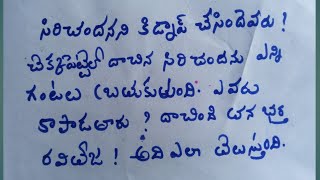 సిరిచందనని కిడ్నాప్ చేసిందెవరు !
చెక్కపెట్టెలో దాచిన సిరిచందను ఎన్ని
గంటలు బ్రయకుతుంది. ఎవరు
కాపాడతారు ? దాచింది తన భర్త
రవితేజ ! అది ఎలా తెలుస్తుంది.